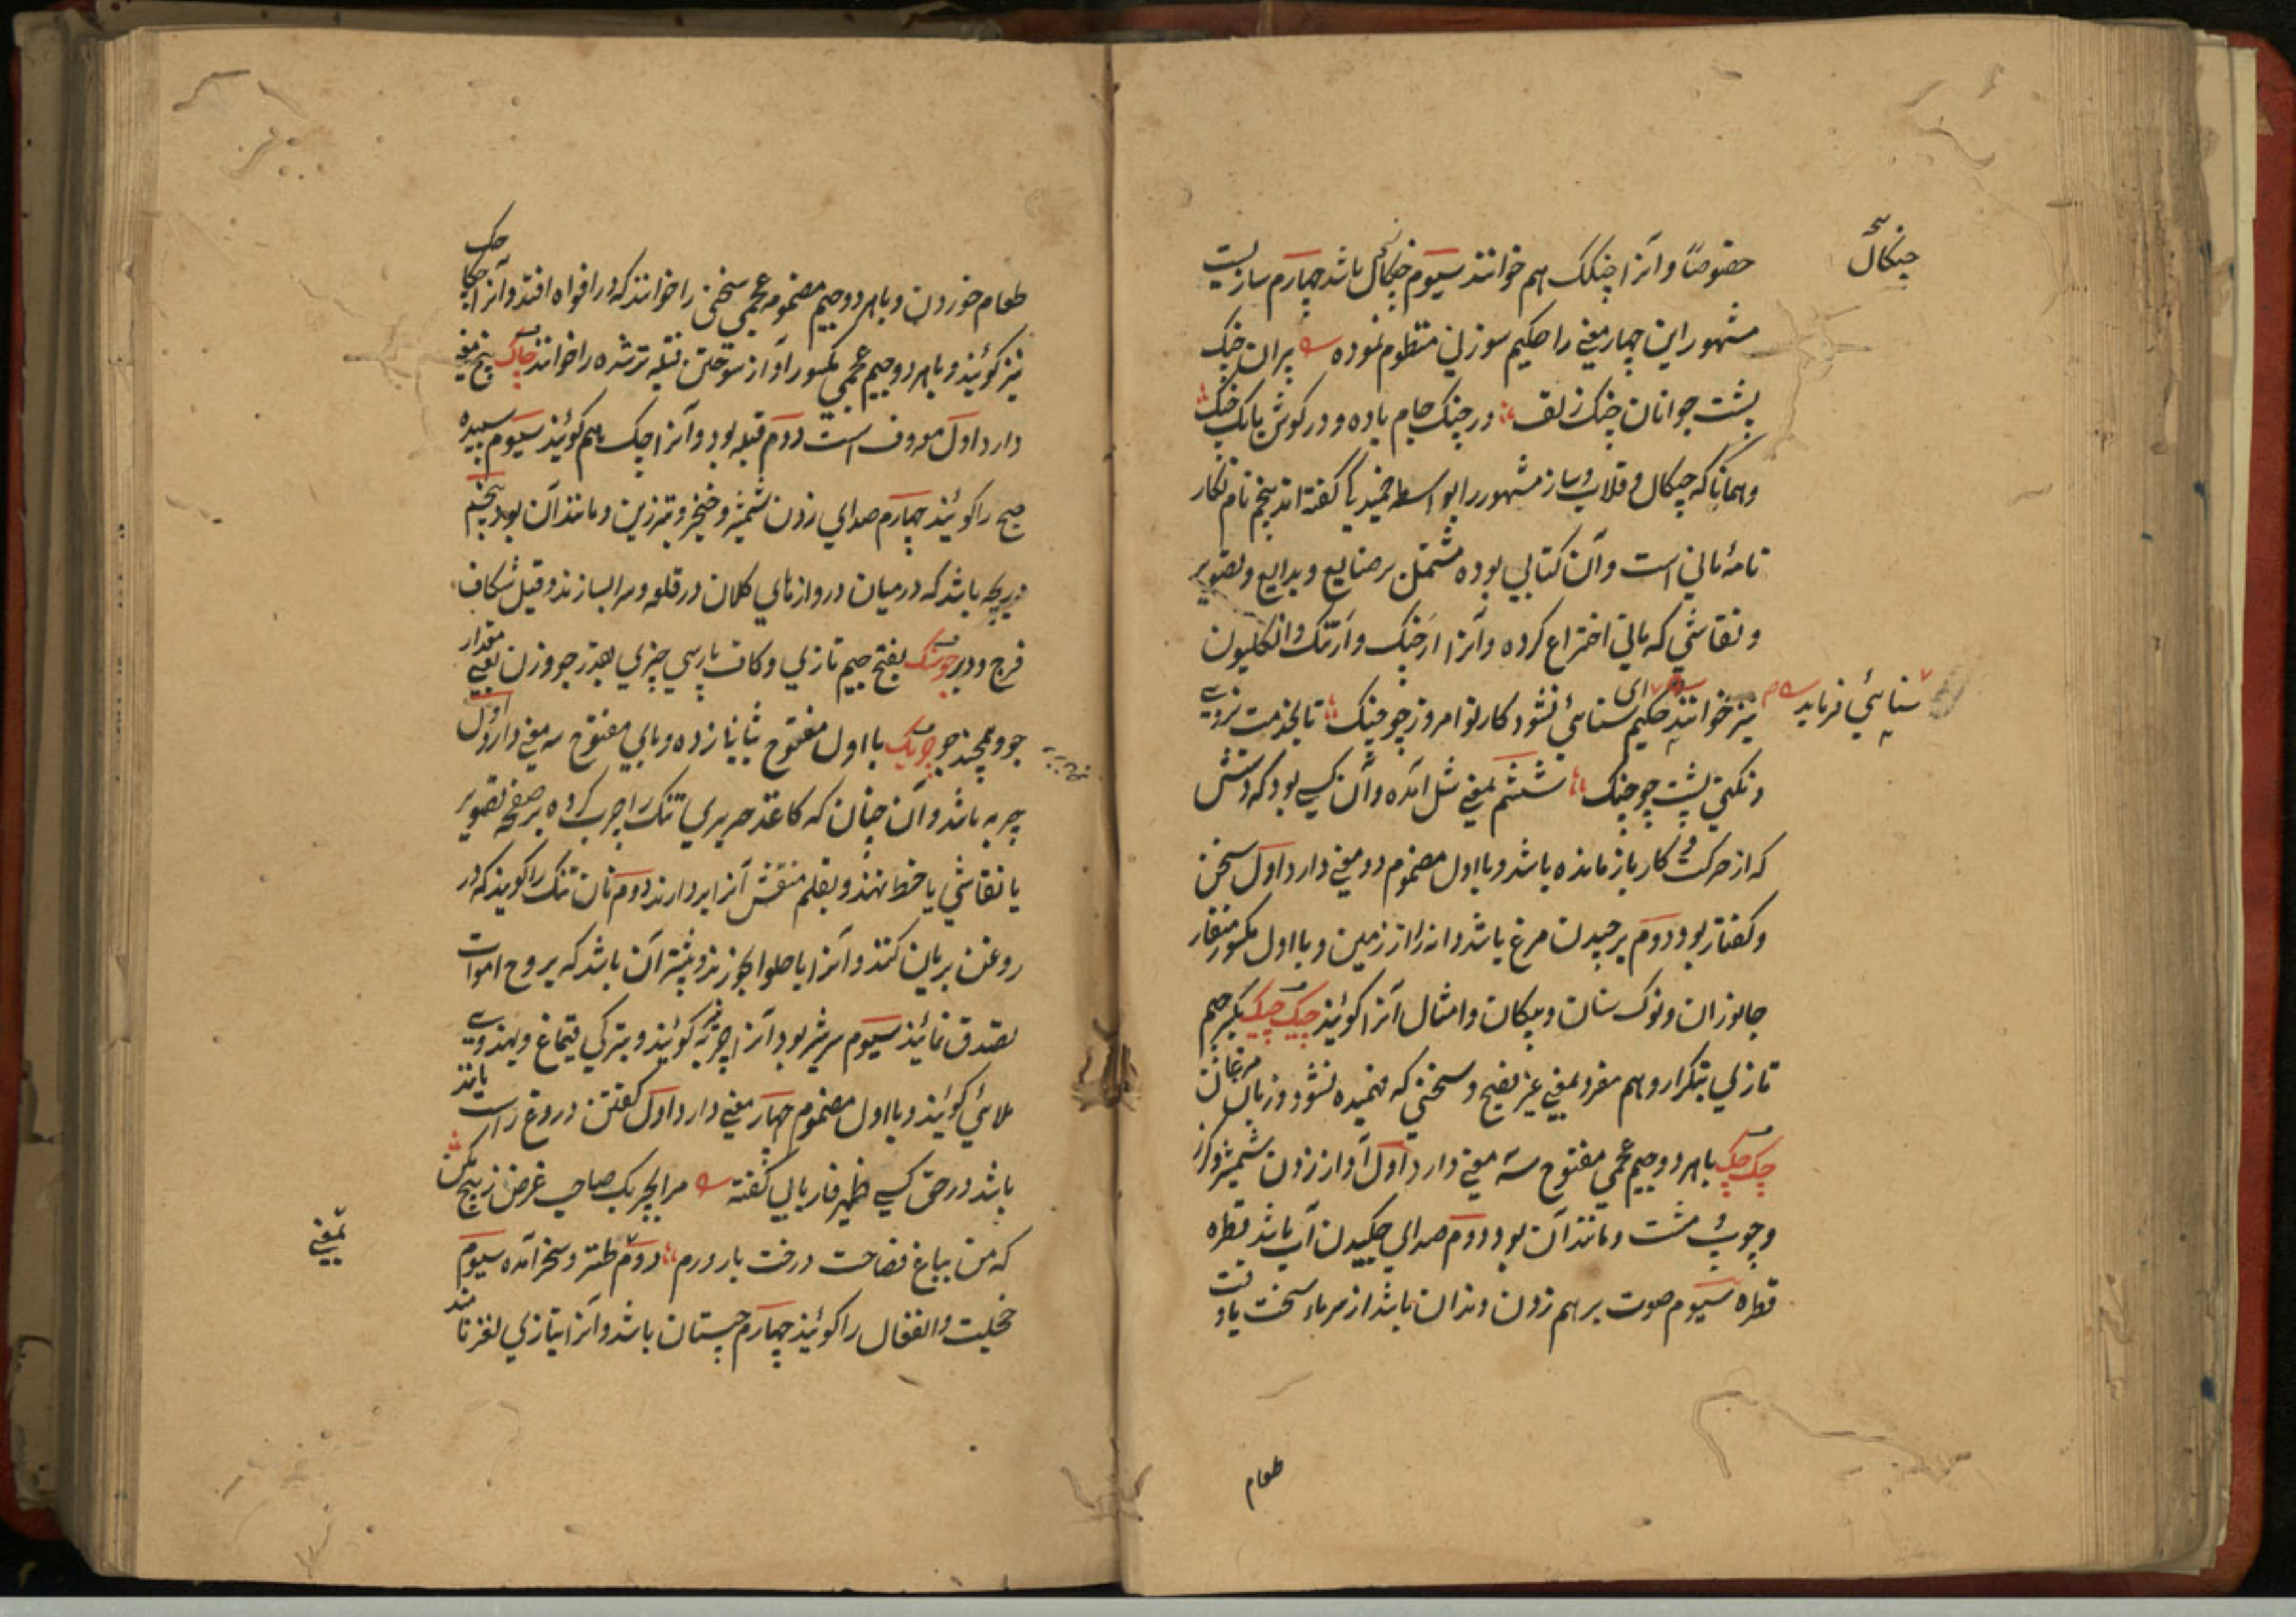 خصوصاً و آنرا چنکک هم خوانند سیوم چنکال باشد چهارم سازیست
چنکال
مشهور این چهار معنی را حکیم سوزنی منظوم نموده پیران چنک
پشت جوانان چنک زلف در چنک جام باده و در کوش بانک چنک
و همانا که چنکال و قلاب و ساز مشهور را بواسطه خمیدکی گفته اند پنجم نام نکار
نامهٔ مانی است و آن کتابی بوده مشتمل بر صنایع و بدایع و تصویر
و نقاشی که مانی اختراع کرده و آنرا ارچنک و ارتنک و انکلیون
نیز خوانند حکیم سنائی نشود کار تو امروز چو چنک تا بخدمت نروی
سنایئ فرماید
و نکنی پشت چو چنک ششم بمعنی شل آمده و آن کسی بود که دستش
که از حرکت و کار باز مانده باشد و با اول مضموم دو معنی دارد اول سخن
و کفتار بود دوم برچیدن مرغ باشد دانه را از زمین و با اول مکسور منقار
جانوران و نوک سنان و پیکان و امثال آنرا کوئیند چیک چیک بکسر جیم
تازی بتکرار و هم مفرد بمعنی غیر فصیح و سخنی که فهمیده نشود و زبان مرغان
چک چک با هر دو جیم عجمی مفتوح سه معنی دارد اول آواز زدن شمشیر و کرز
و چوب و مشت و مانند آن بود دوم صدای چکیدن آب باشد قطره
قطره سیوم صوت برهم زدن دندان باشد از سرما سخت یا وقت
طعام
طعام خوردن و با هر دو جیم مضمومه عجمی سخنی را خوانند که در افواه افتد و آنرا چکاچک
نیز کوئیند و با هر دو جیم عجمی مکسور آواز سوختن فتیله تر شده را خوانند چاک پنج معنی
دارد اول معروف است دوم قباله بود و آنرا چک هم کوئیند سیوم سپیده
صبح را کوئیند چهارم صدای زدن شمشیر و خنجر و تبرزین و مانند آن بود پنجم
دریچه باشد که در میان دروازهای کلان در قلعه و سرا بسازند و قیل شکاف
فرج و دبر جوسنک بفتح جیم تازی و کاف پارسی چیزی بقدر جو وزن یعنی مقدار
جو و همچند جو چربک با اول مفتوح بثانی زده و بای مفتوح سه معنی دارد اول
چربه باشد و آن چنان که کاغذ حریری تنک را چرب کرده بر صفحه تصویر
یا نقاشی یا خط نهند و بقلم منقش آنرا بردارند دوم نان تنک را کویند که در
روغن بریان کنند و آنرا با حلوا بخورند و بیشتر آن باشد که بروح اموات
تصدق نمائیند سیوم سرشیر بود آنرا چربه کوئیند و بترکی قیماغ و بهندوی
ملائی کوئیند و با اول مضموم چهار معنی دارد اول کفتن دروغ راست مانند
باشد در حق کسی ظهیر فاریابی کفته مرا بچربک صاحب غرض ز بیخ مکن
که من بباغ فصاحت درخت بارورم دوم طنز و سخر آمده سیوم
بمعنی
خجلت و انفعال را کوئیند چهارم چیستان باشد و آنرا بتازی لغز نامند